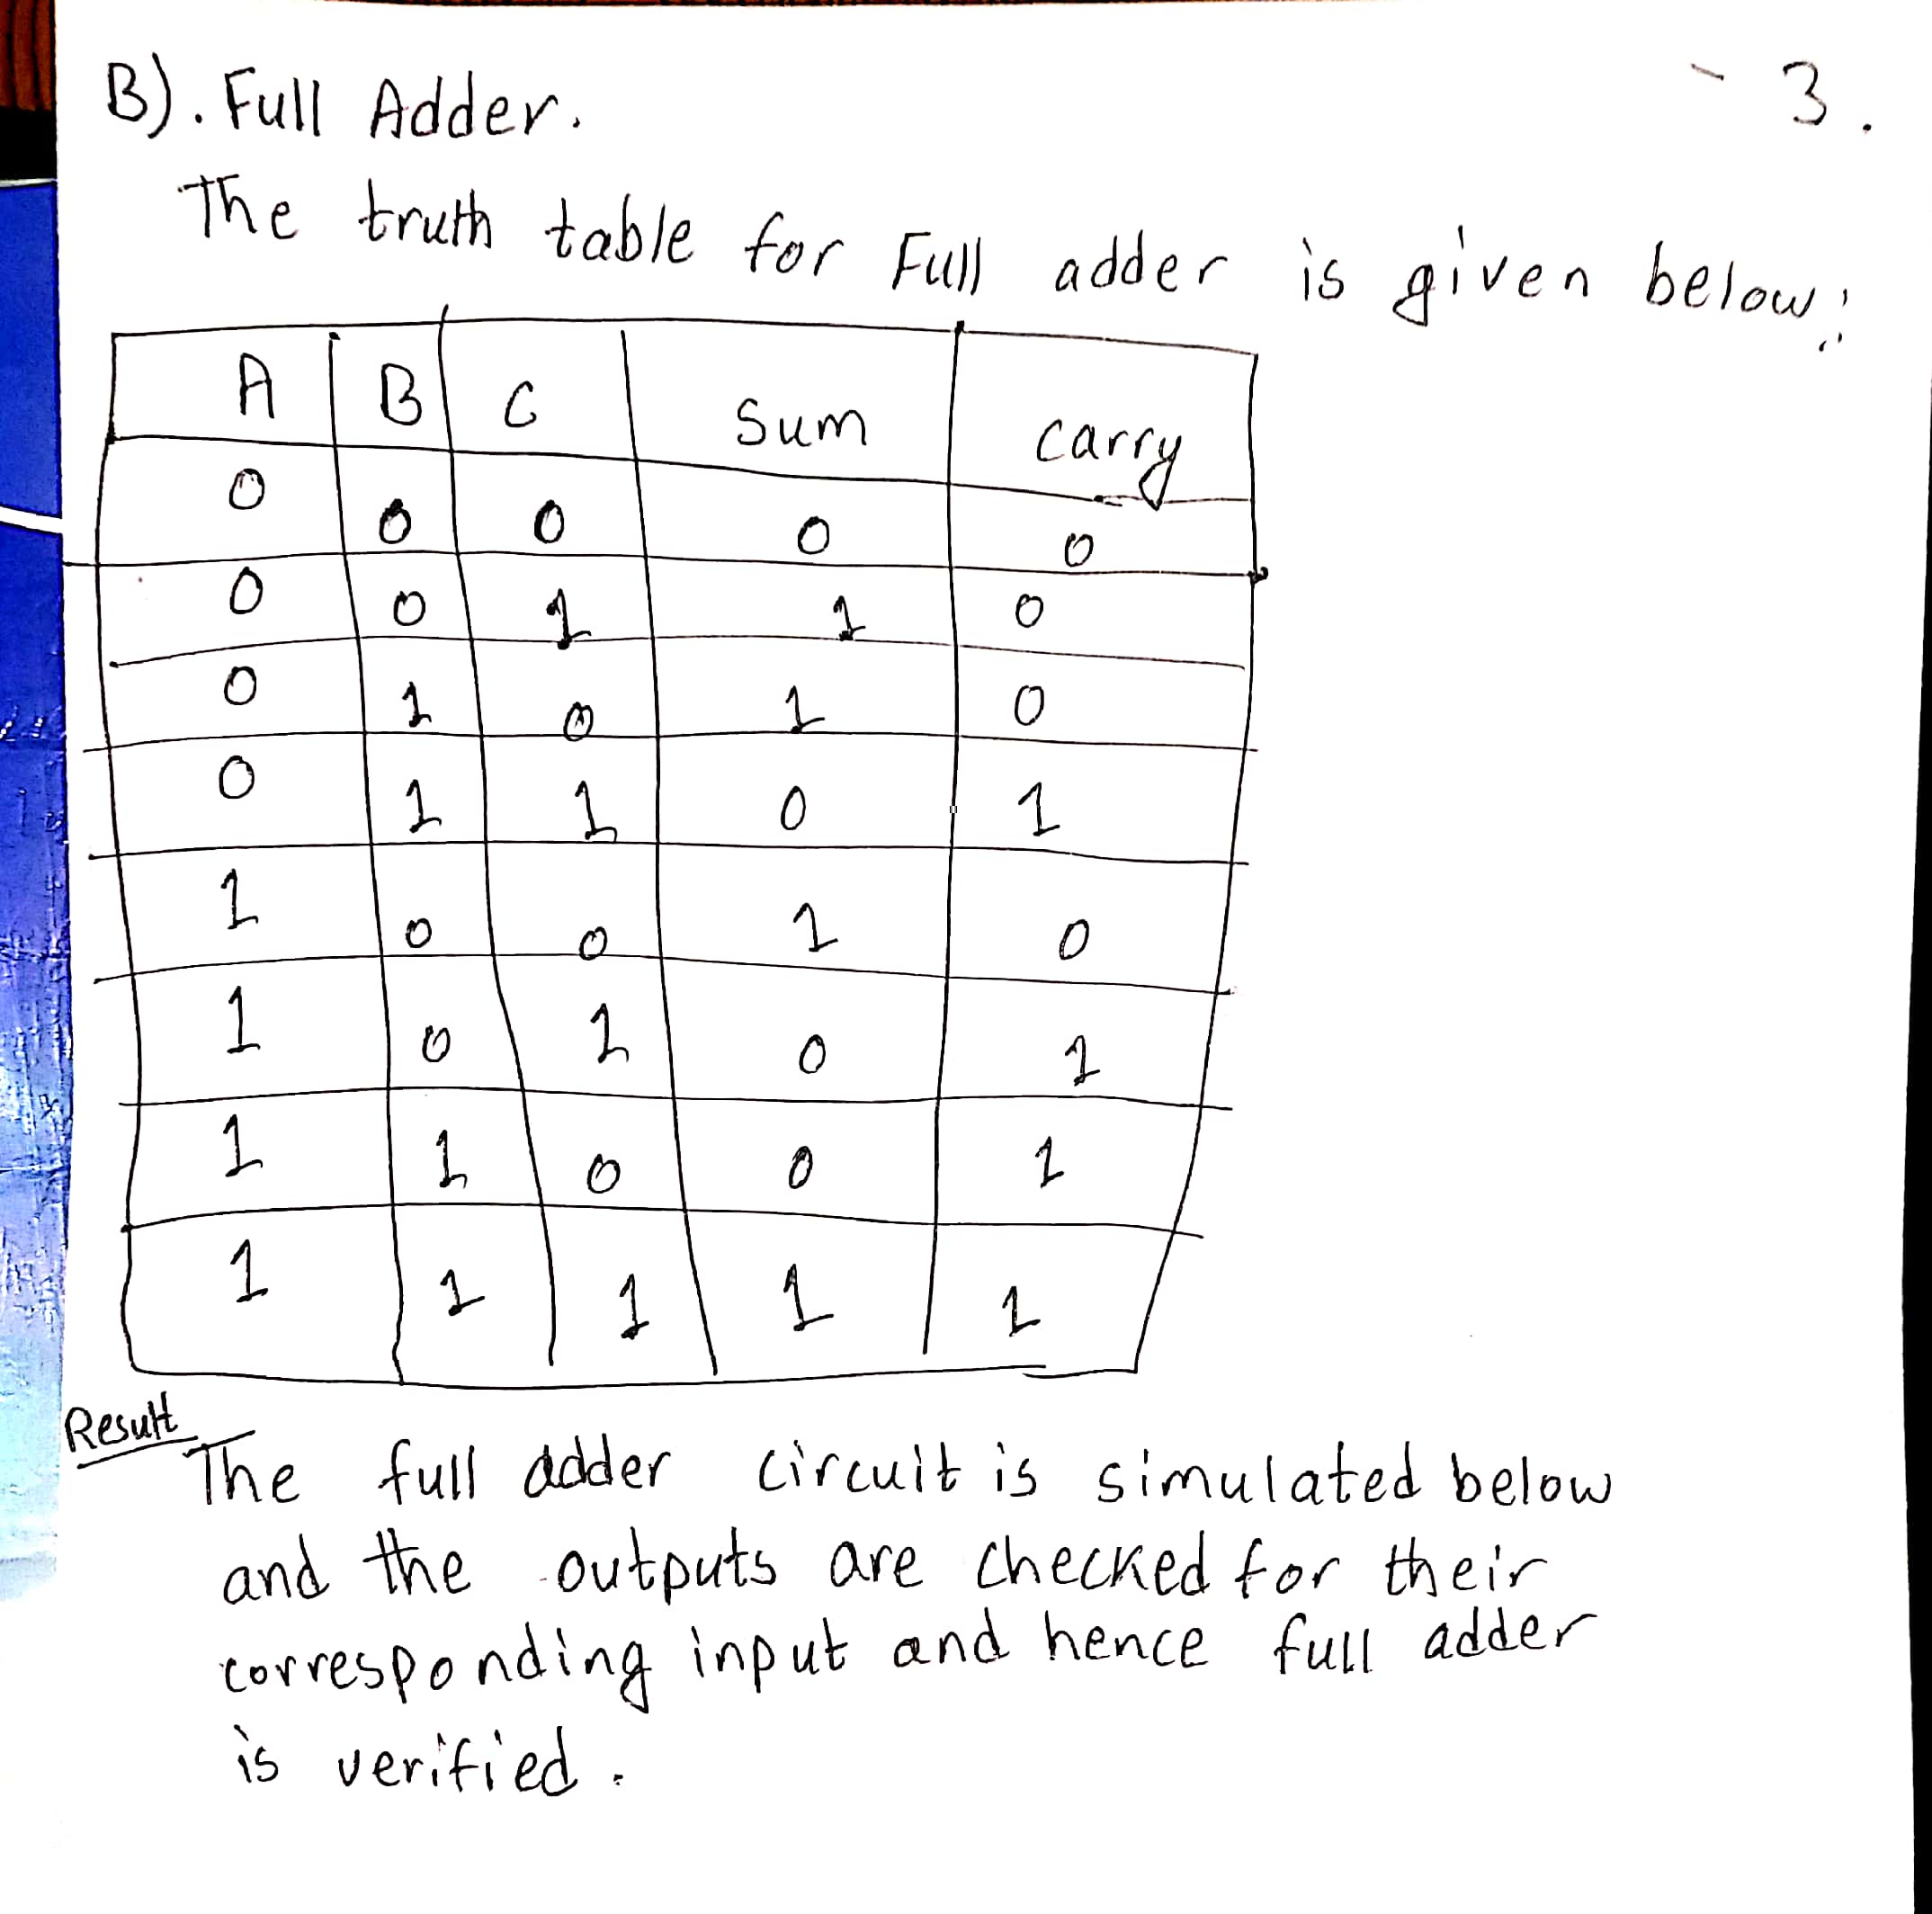 B). Full Adder.
- 3.
The truth table for Full adder is given below:
A B C Sum carry
0 0 0 0 0
0 0 1 1 0
0 1 0 1 0
0 1 1 0 1
1 0 0 1 0
1 0 1 0 1
1 1 0 0 1
1 1 1 1 1
Result
The full adder circuit is simulated below
and the outputs are checked for their
corresponding input and hence full adder
is verified.